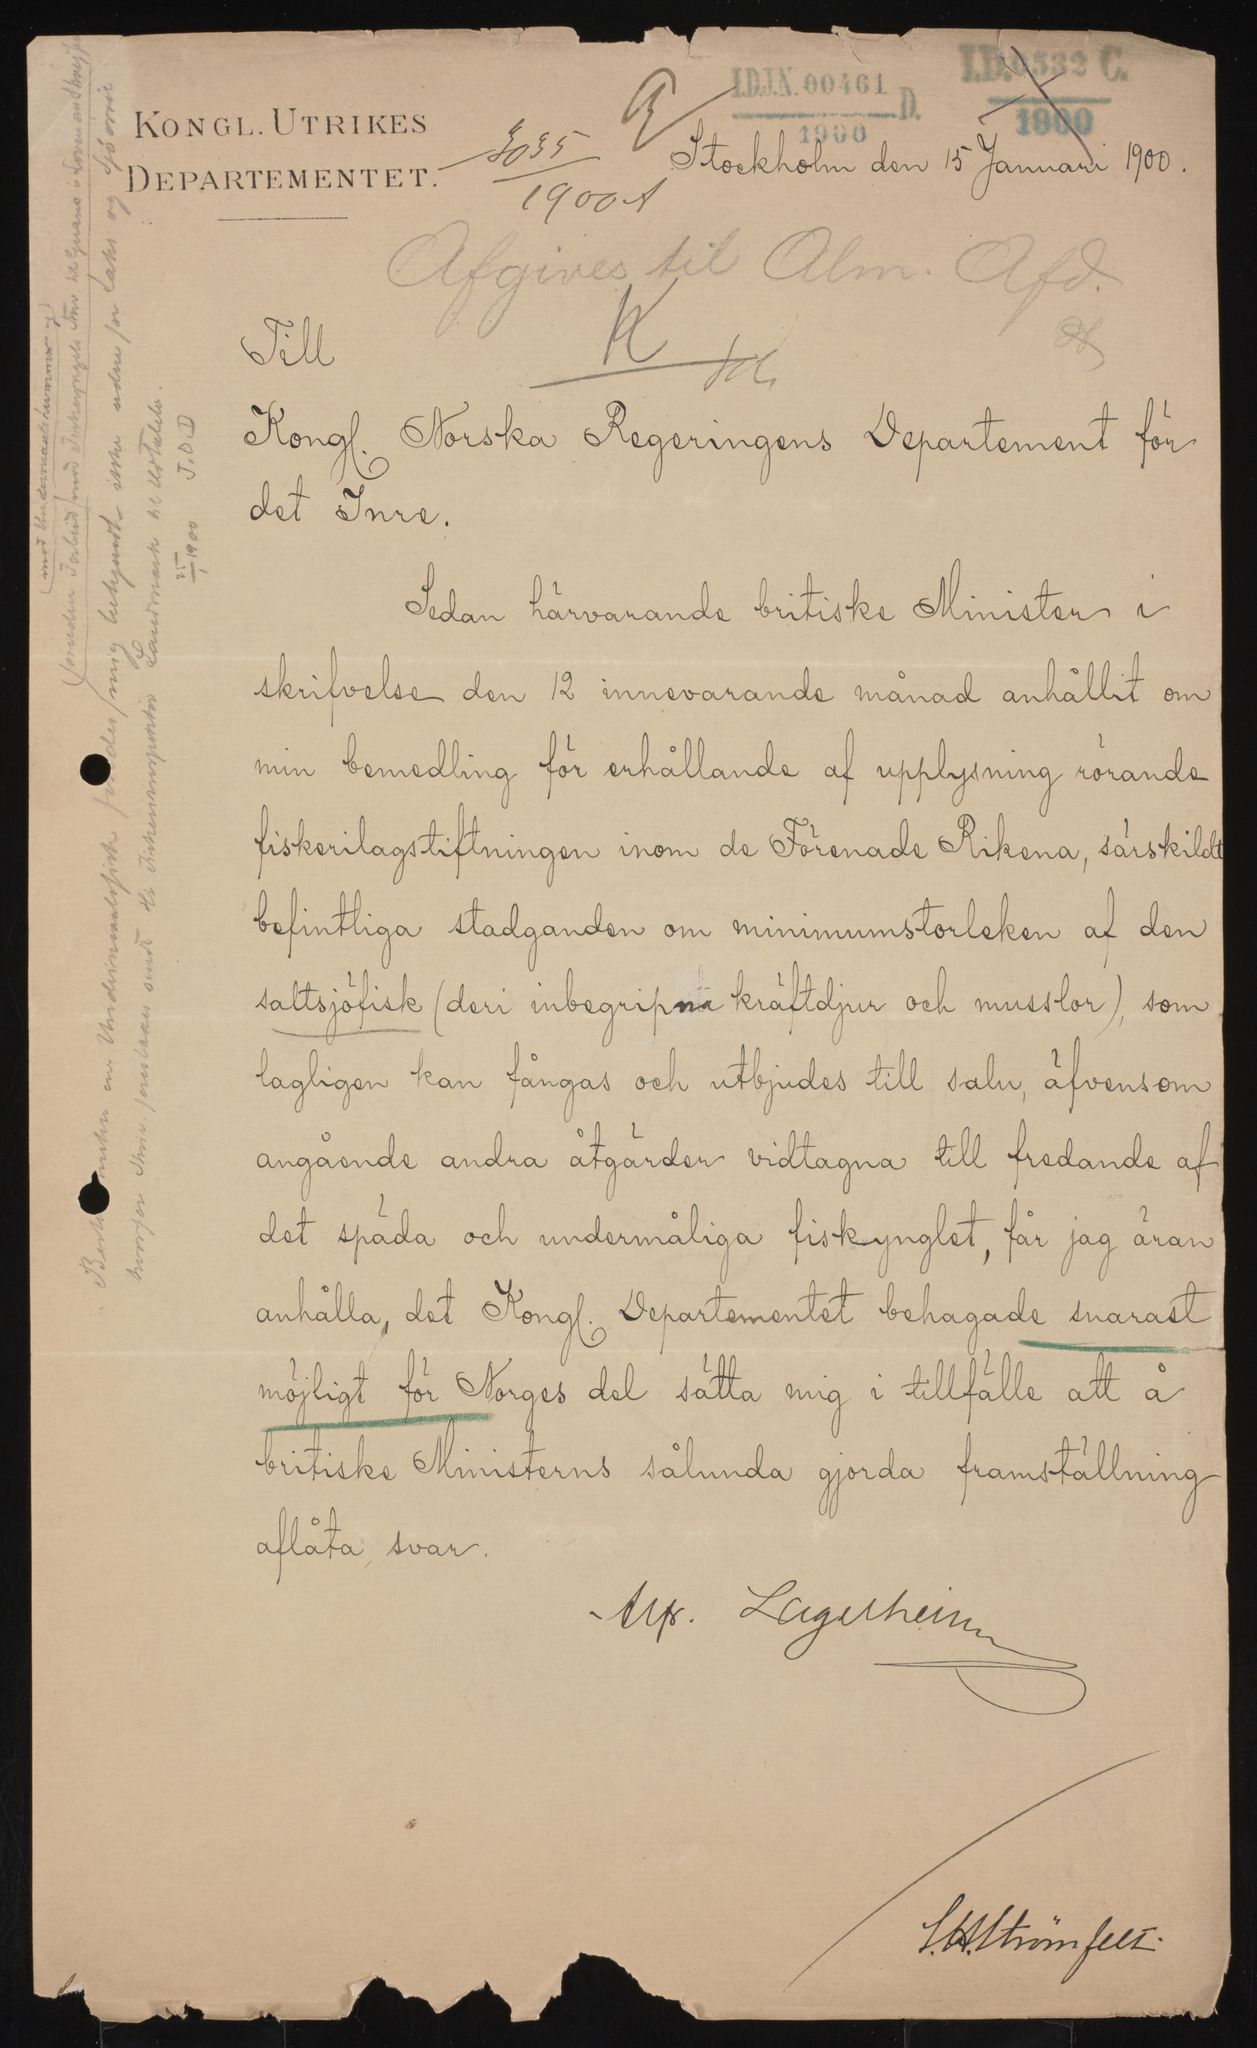 KONGL. UTRIKES
DEPARTEMENTET.
3035
1900 A
I.D.J.N. 00461 D.
1900
I.D. 0532 C.
1900
Stockholm den 15 Januari 1900.
Afgives til Alm. Afd.
K
Till
Kongl. Norska Regeringens Departement för
det Inre.
Sedan härvarande britiske Minister i
skrifvelse den 12 innevarande månad anhållit om
min bemedling för erhållande af upplysning rörande
fiskerilagstiftningen inom de Förenade Rikena, särskildt
befintliga stadganden om minimumstorleken af den
saltsjöfisk (deri inbegripna kräftdjur och musslor), som
lagligen kan fångas och utbjudes till salu, äfvensom
angående andra åtgärder vidtagna till fredande af
det späda och undermåliga fiskynglet, får jag äran
anhålla, det Kongl. Departementet behagade snarast
möjligt för Norges del sätta mig i tillfälle att å
britiske Ministerns sålunda gjorda framställning
aflåta svar.
Alfr. Lagerheim
S.A. Strömfelt.
mig bekjendt ikke uden for laks og sjöørret
Landmark til Udtalelse.
25/1 1900 I.D.D